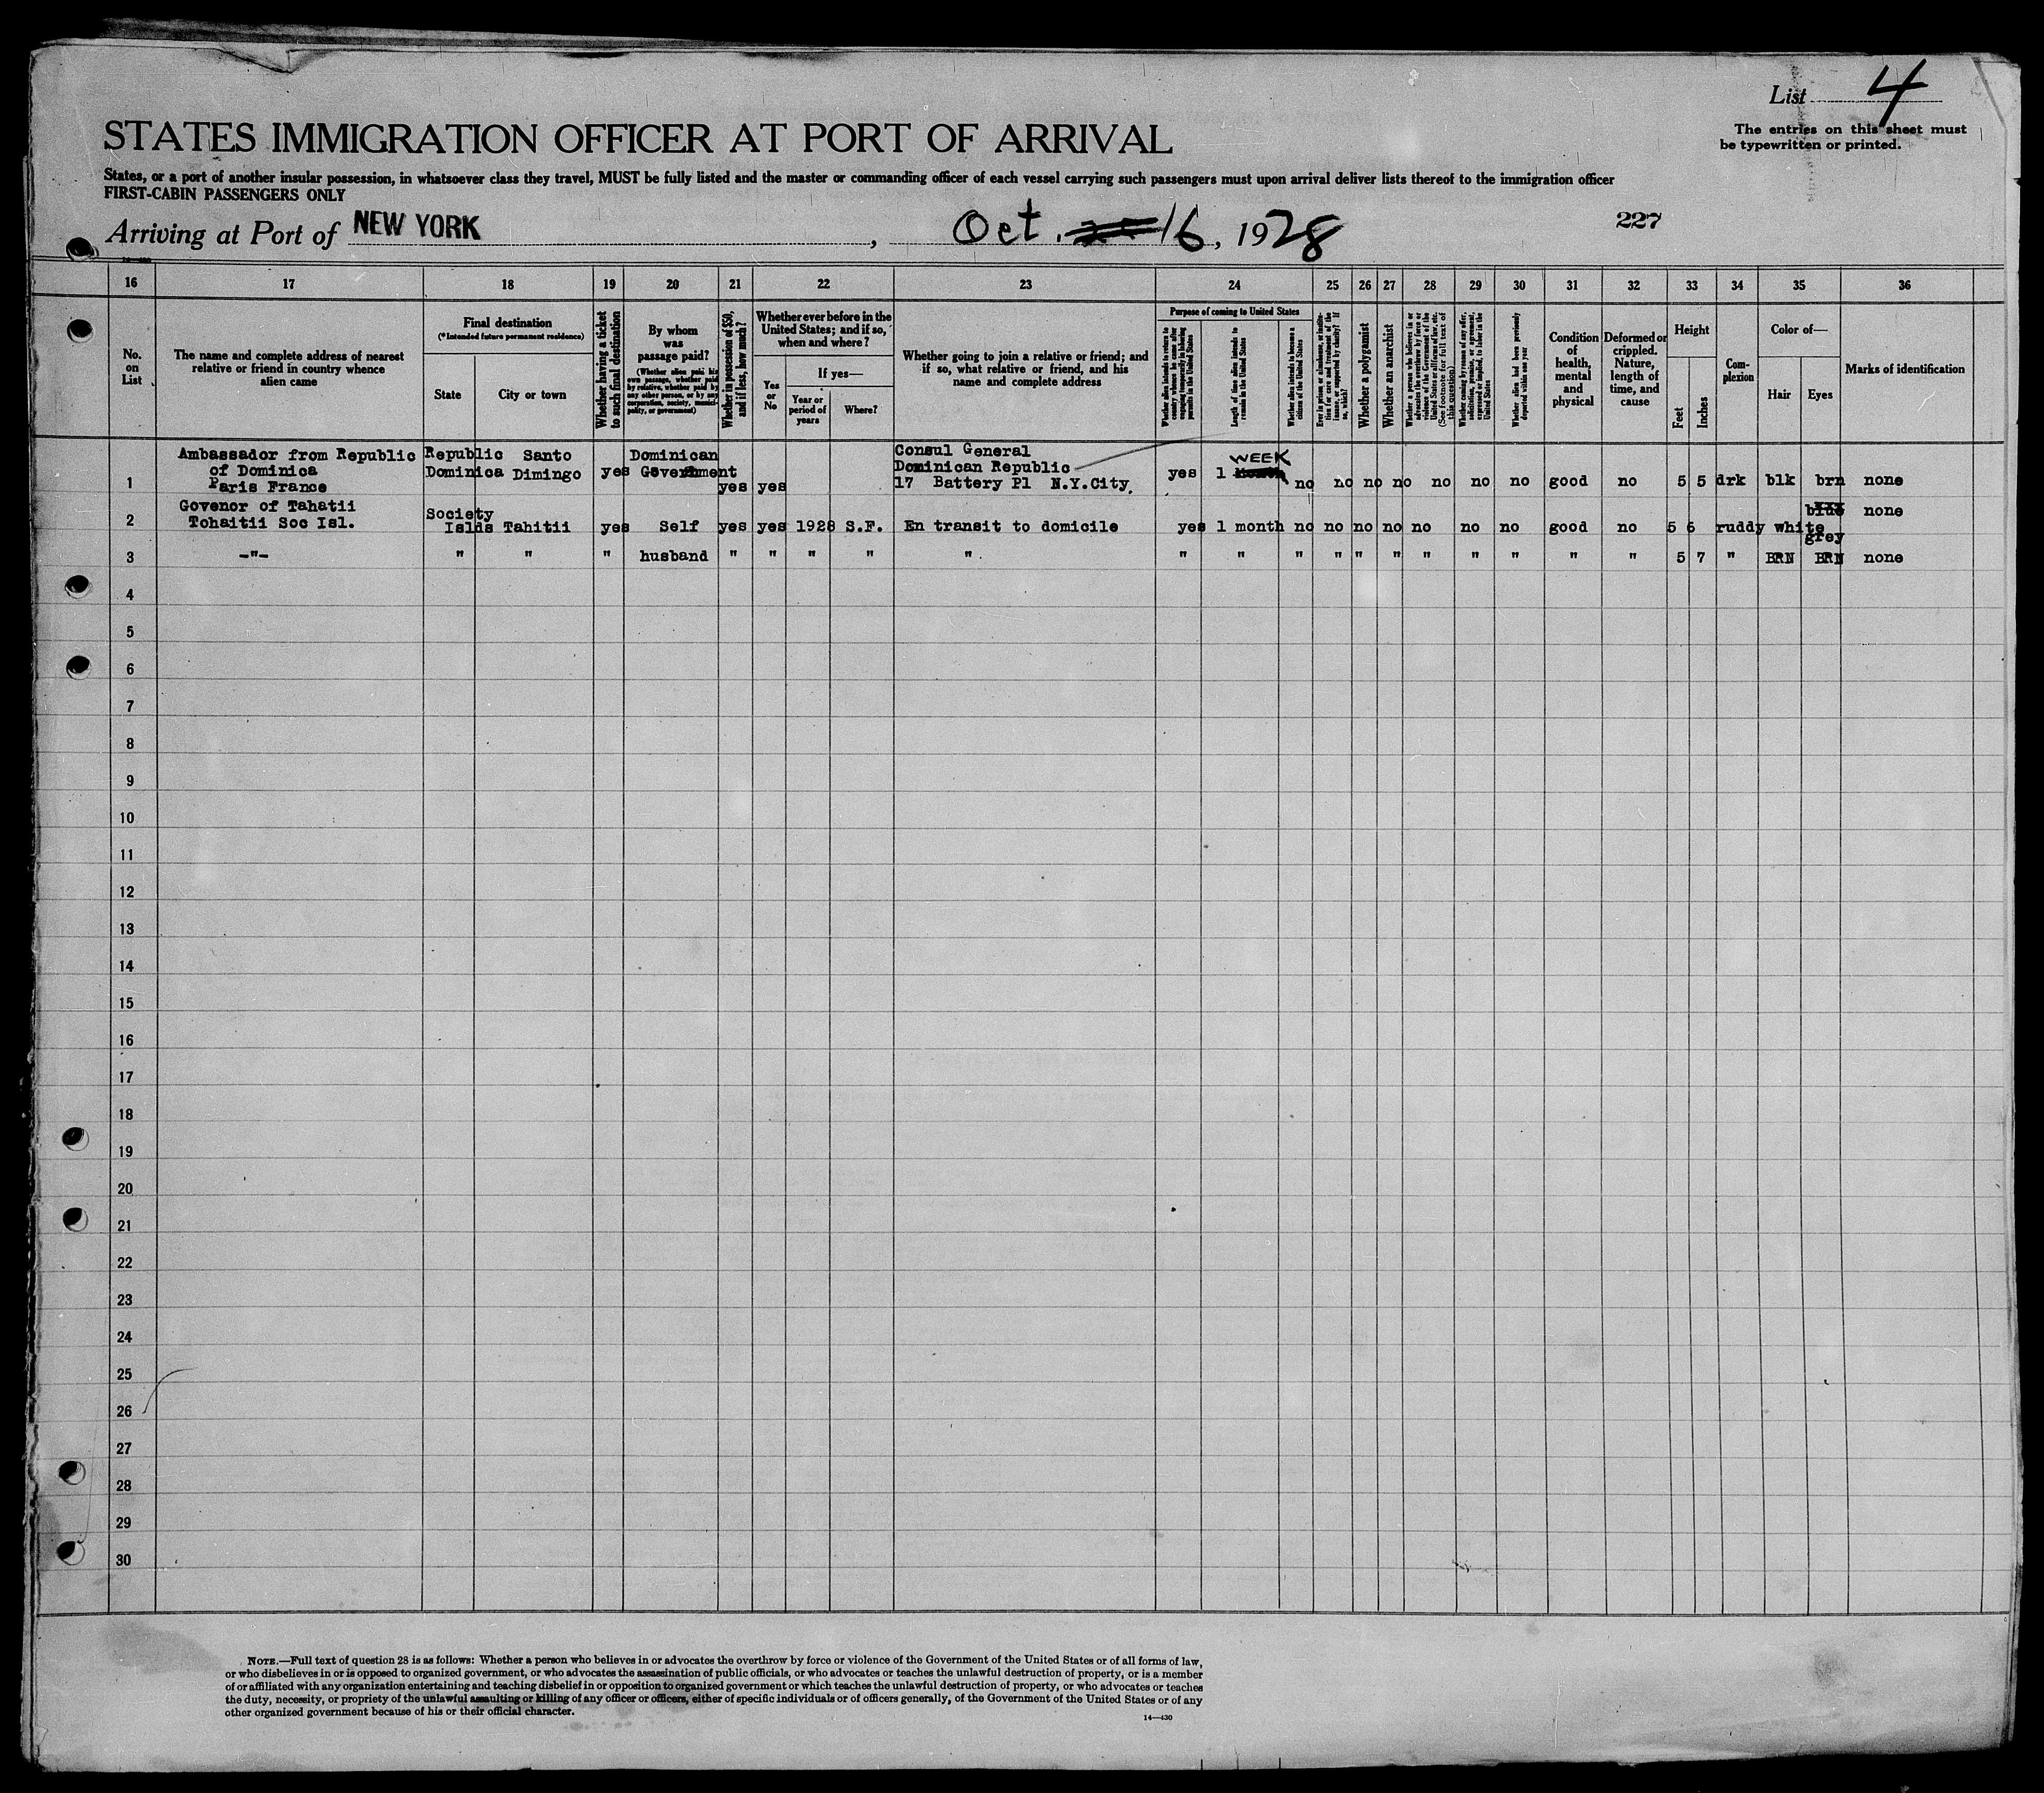 List 4
The entries on this sheet must
be typewritten or printed.
STATES IMMIGRATION OFFICER AT PORT OF ARRIVAL
States, or a port of another insular possession, in whatsoever class they travel, MUST be fully listed and the master or commanding officer of each vessel carrying such passengers must upon arrival deliver lists thereof to the immigration officer
FIRST-CABIN PASSENGERS ONLY
Arriving at Port of NEW YORK, Oct. 16, 1928
227
16 17 18 19 20 21 22 23 24 25 26 27 28 29 30 31 32 33 34 35 36
No.
on
List
The name and complete address of nearest
relative or friend in country whence
alien came
Final destination
(*Intended future permanent residence)
State
City or town
Whether having a ticket
to such final destination
By whom
was
passage paid?
(Whether alien paid his
own passage, whether paid
by relative, whether paid by
any other person, or by any
corporation, society, munici-
pality, or government)
Whether in possession of $50,
and if less, how much?
Whether ever before in the
United States; and if so,
when and where?
Yes
or
No
If yes—
Year or
period of
years
Where?
Whether going to join a relative or friend; and
if so, what relative or friend, and his
name and complete address
Purpose of coming to United States
Whether alien intends to return to
country whence he came after
engaging temporarily in laboring
pursuits in the United States
Length of time alien intends to
remain in the United States
Whether alien intends to become a
citizen of the United States
Ever in prison or almshouse, or institu-
tion for care and treatment of the
insane, or supported by charity? If
so, which?
Whether a polygamist
Whether an anarchist
Whether a person who believes in or
advocates the overthrow by force or
violence of the Government of the
United States or all forms of law, etc.
(See footnote for full text of
this question)
Whether coming by reason of any offer,
solicitation, promise, or agreement,
expressed or implied, to labor in the
United States
Whether alien had been previously
deported within one year
Condition
of
health,
mental
and
physical
Deformed or
crippled.
Nature,
length of
time, and
cause
Height
Feet
Inches
Com-
plexion
Color of—
Hair
Eyes
Marks of identification
Ambassador from Republic Republic Santo Dominican Consul General
of Dominica Dominica Dimingo yes Government Dominican Republic yes 1 WEEK
1 Paris France yes yes 17 Battery Pl N.Y.City, no no no no no no no good no 5 5 drk blk brn none
Govenor of Tahatii Society blue none
2 Tohaitii Soc Isl. Islds Tahitii yes Self yes yes 1928 S.F. En transit to domicile yes 1 month no no no no no no no good no 5 6 ruddy white
grey
3 -"- " " " husband " " " " " " " " " " " " " " " " 5 7 " BRN BRN none
4
5
6
7
8
9
10
11
12
13
14
15
16
17
18
19
20
21
22
23
24
25
26
27
28
29
30
NOTE.—Full text of question 28 is as follows: Whether a person who believes in or advocates the overthrow by force or violence of the Government of the United States or of all forms of law,
or who disbelieves in or is opposed to organized government, or who advocates the assassination of public officials, or who advocates or teaches the unlawful destruction of property, or is a member
of or affiliated with any organization entertaining and teaching disbelief in or opposition to organized government or which teaches the unlawful destruction of property, or who advocates or teaches
the duty, necessity, or propriety of the unlawful assaulting or killing of any officer or officers, either of specific individuals or of officers generally, of the Government of the United States or of any
other organized government because of his or their official character.
14—430